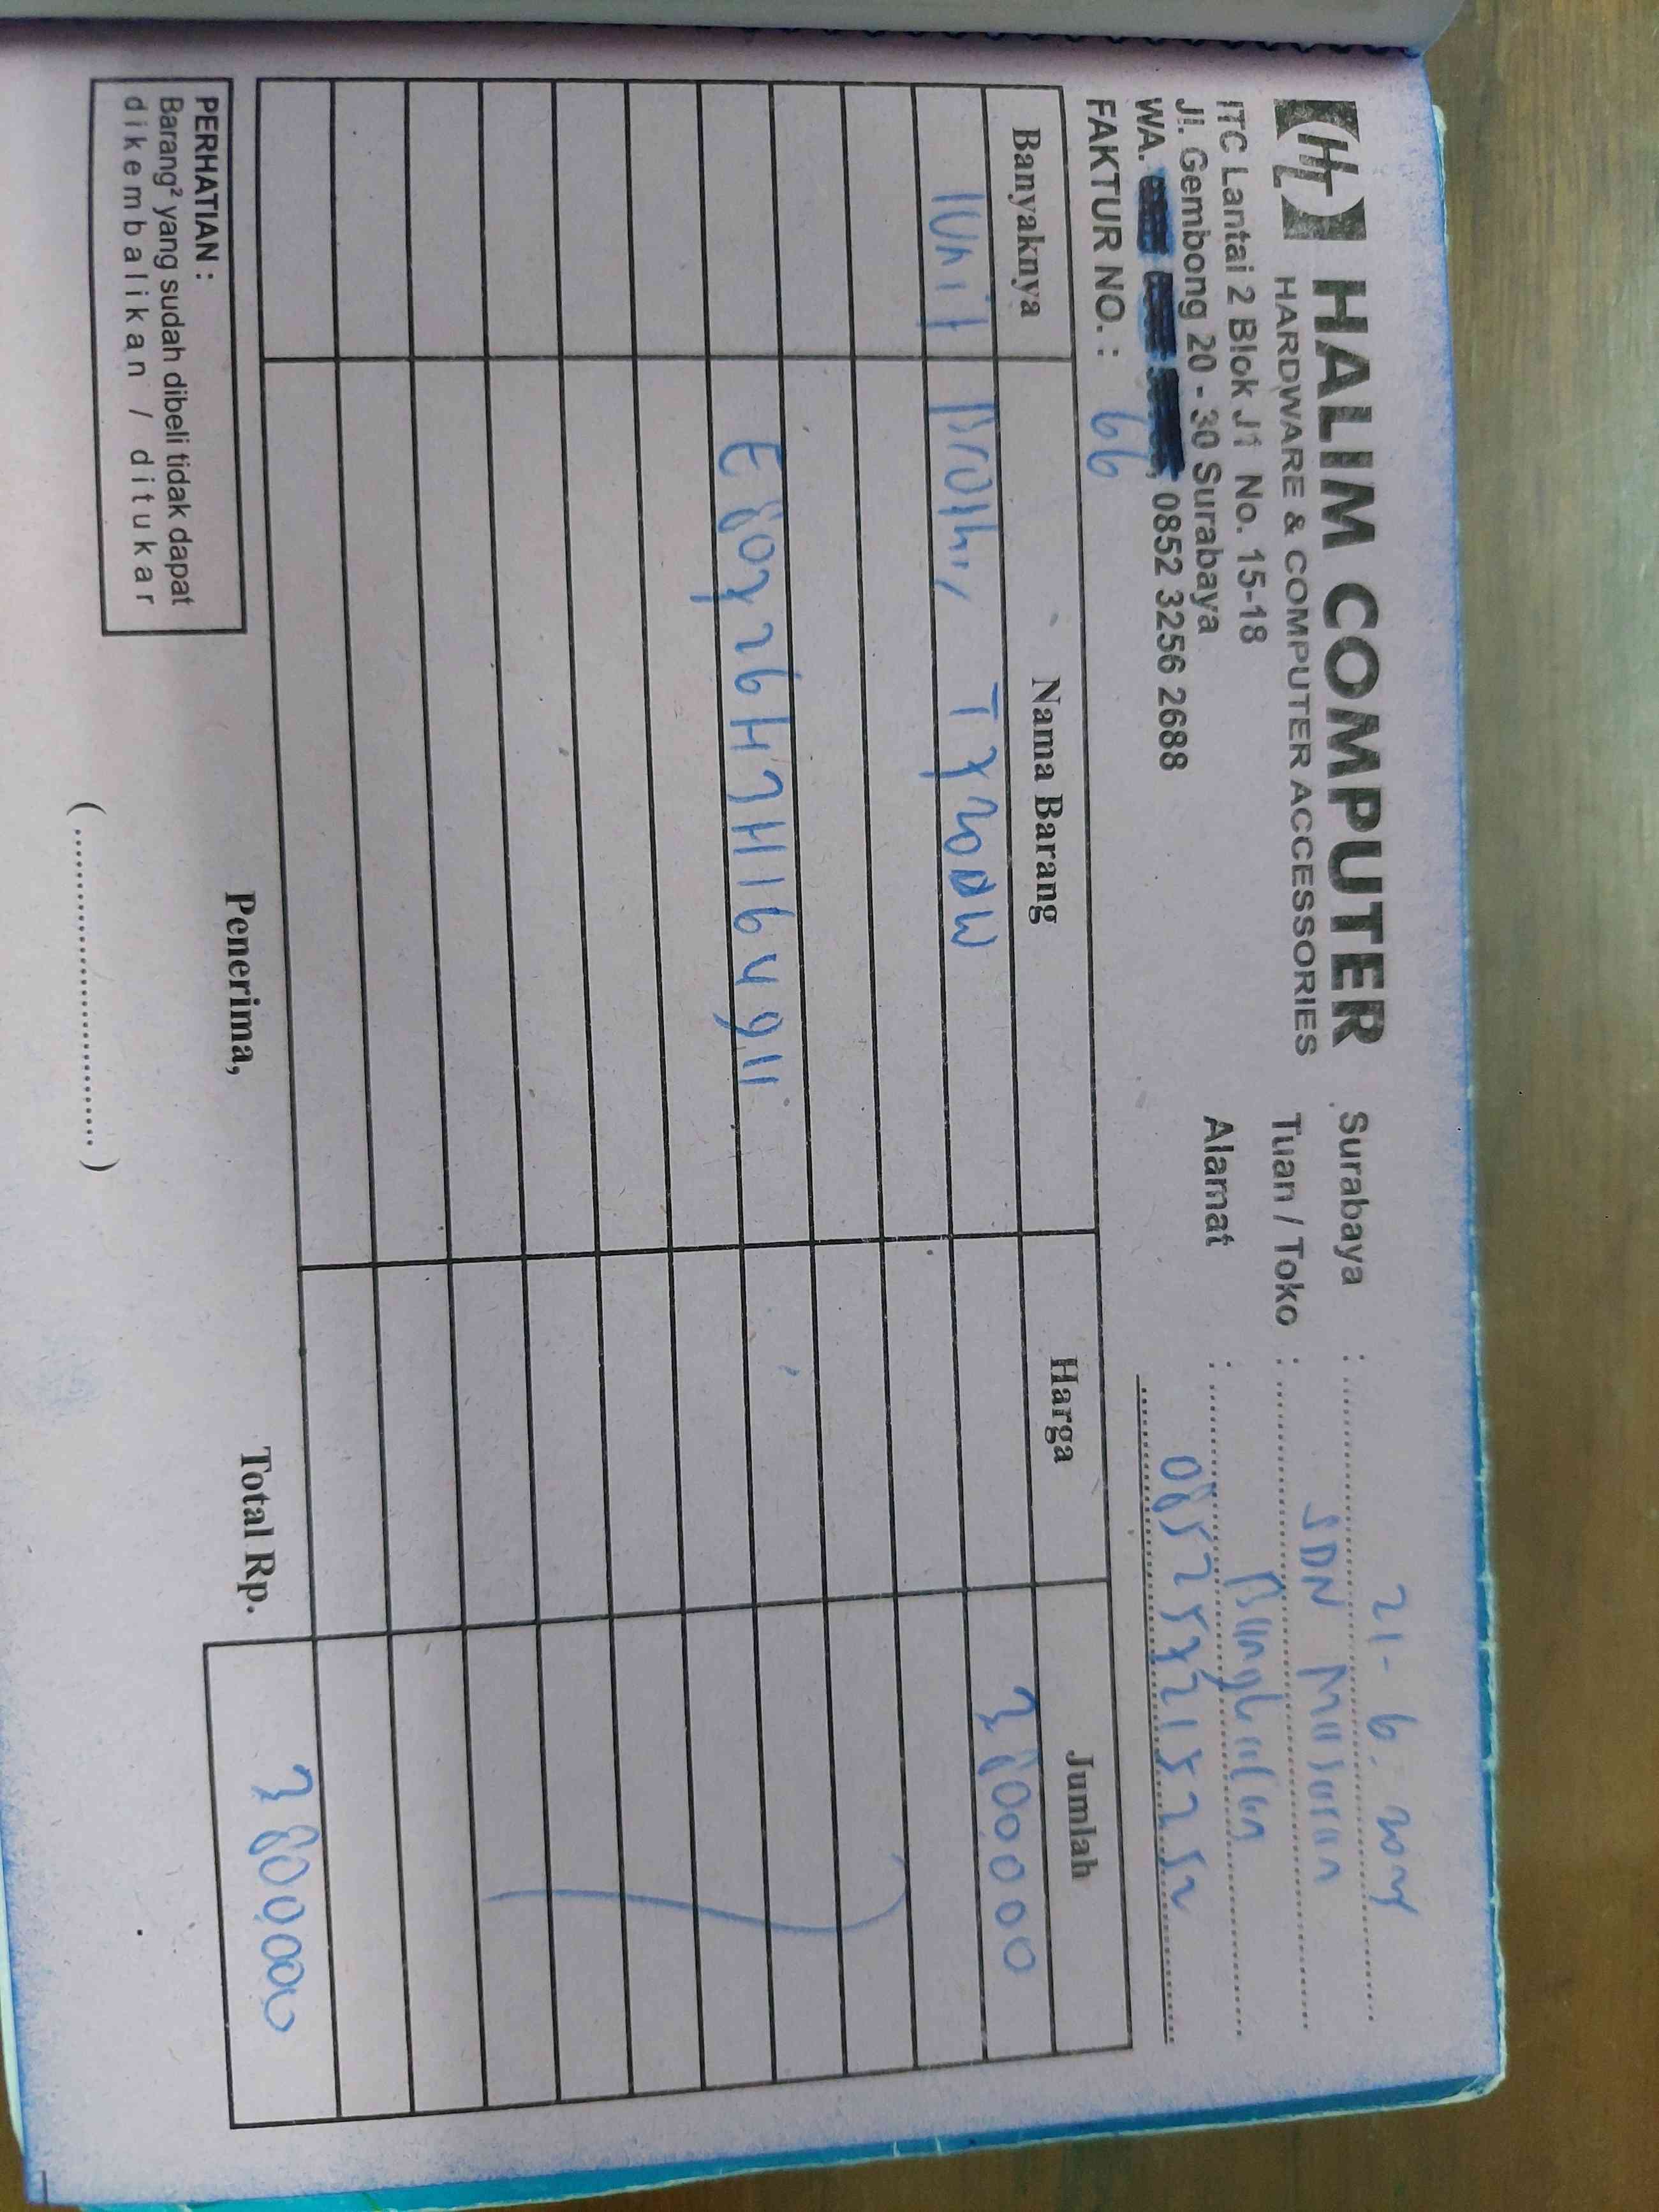 HL HALIM COMPUTER
HARDWARE & COMPUTER ACCESSORIES
ITC Lantai 2 Blok J1 No. 15-18
Jl. Gembong 20 - 30 Surabaya
WA. 0852 3256 2688
FAKTUR NO. : 66
Surabaya : 21-6-2024
Tuan / Toko : SDN
Alamat : Bangkalan
Banyaknya Nama Barang Harga Jumlah
1 Unit Brother 3800000
PERHATIAN :
Barang² yang sudah dibeli tidak dapat
dikembalikan / ditukar
Penerima,
(..............................)
Total Rp. 3800000